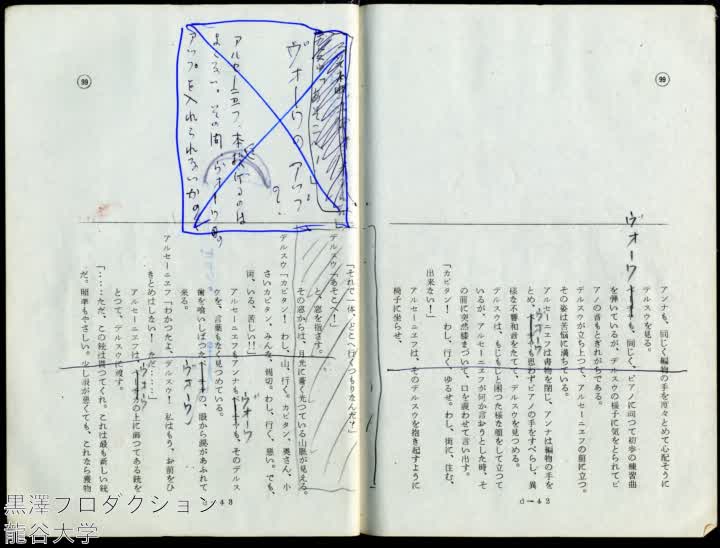 99
ヴォーワ
アンナも、同じく編物の手を時々とめて心配そうに
デルスウを見る。
も、同じく、ピアノに向つて初歩の練習曲
を弾いているが、デルスウの様子に気をとられてピ
アノの音もとぎれがちである。
デルスウが立ち上つて、アルセーニエフの前に立つ。
その姿は苦悩に満ちている。
アルセーニエフは書物を閉じ、アンナは編物の手を
とめ、ヴォーワも思わずピアノの手をすべらし、異
様な不響和音をたてて、デルスウを見つめる。
デルスウは、もじもじと困つた様な顔をして立つて
いるが、アルセーニエフが何か言おうとした時、そ
の前に突然跪まづいて、口を震わせて言い出す。
「カピタン！ わし、行く、ゆるせ。わし、街に、住む、
出来ない！」
アルセーニエフは、そのデルスウを抱き起すように
椅子に坐らせ、
d－42
99
ヴォーワのアップ
？
アルセーニエフ、本投げるのは
まづい。その間にヴォーワの
アップを入れられないか？
「それで一体、どこへ行くつもりなんだ？」
デルスウ「あそこへ！」
と、窓を指さす。
その窓からは、月光に蒼く光つている山脈が見える。
デルスウ「カピタン！ わし、山、行く。カピタン、奥さん、小
さいカピタン、みんな、親切。わし、行く、悪い。でも、
街、いる、苦しい！！」
アルセーニエフもアンナもヴォーワも、そのデルス
ウを、言葉もなく見つめている。
歯を喰いしばつたヴォーワの、眼から涙があふれて
来る。
アルセーニエフ「わかつたよ、デルスウ！ 私はもう、お前をひ
きとめはしない！ ただ……」
アルセーニエフは、ヴォーワの上に掛つてある銃を
とつて、デルスウに渡す。
「……ただ、この銃は持つてくれ。これは最も新しい銃
だ。照準もやさしい。少し眼が悪くても、これなら獲物
43
黒澤プロダクション
龍谷大学